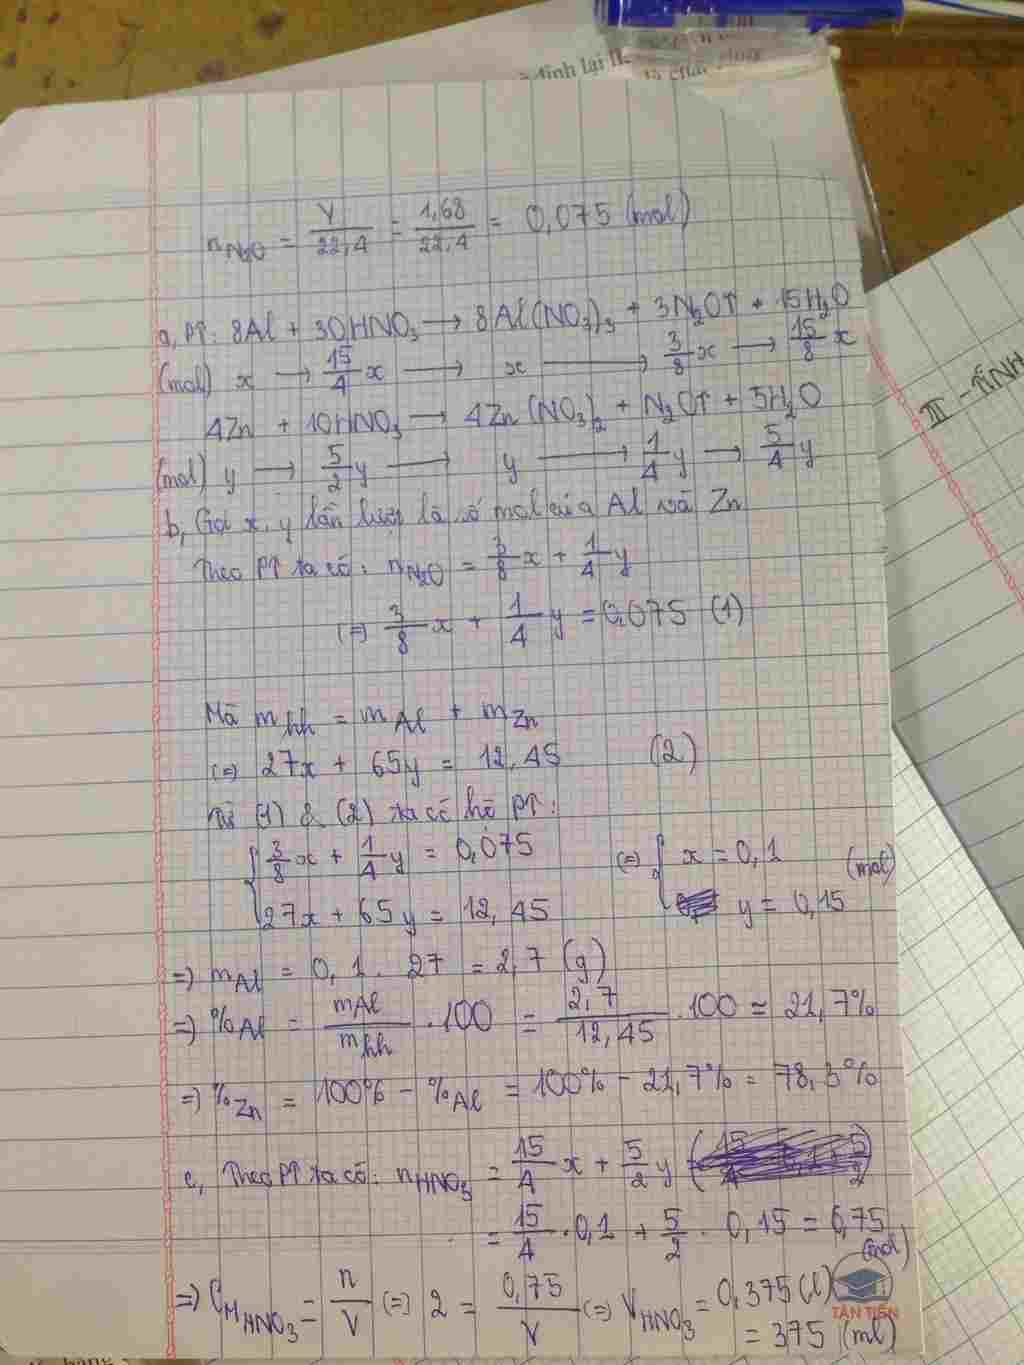 định lại
n_{N₂O} = V/22,4 = 1,68/22,4 = 0,075 (mol)
a, PT: 8Al + 30HNO₃ → 8Al(NO₃)₃ + 3N₂O↑ + 15H₂O
(mol) x → 15/4 x → x → 3/8 x → 15/8 x
4Zn + 10HNO₃ → 4Zn(NO₃)₂ + N₂O↑ + 5H₂O
(mol) y → 5/2 y → y → 1/4 y → 5/4 y
b, Gọi x, y lần lượt là số mol của Al và Zn
Theo PT ta có: n_{N₂O} = 3/8 x + 1/4 y
(=) 3/8 x + 1/4 y = 0,075 (1)
Mà m_{hh} = m_{Al} + m_{Zn}
(=) 27x + 65y = 12,45 (2)
Từ (1) & (2) ta có hệ PT:
{ 3/8 x + 1/4 y = 0,075 (=) { x = 0,1 (mol)
27x + 65y = 12,45 y = 0,15
=) m_{Al} = 0,1 . 27 = 2,7 (g)
=) %Al = m_{Al}/m_{hh} . 100 = 2,7/12,45 . 100 = 21,7%
=) %_{Zn} = 100% - %_{Al} = 100% - 21,7% = 78,3%
c, Theo PT ta có: n_{HNO₃} = 15/4 x + 5/2 y
= 15/4 . 0,1 + 5/2 . 0,15 = 0,75 (mol)
=) C_{M HNO₃} = n/V (=) 2 = 0,75/V (=) V_{HNO₃} = 0,375 (l)
= 375 (ml)
TÂN TIẾN
III - TÍNH